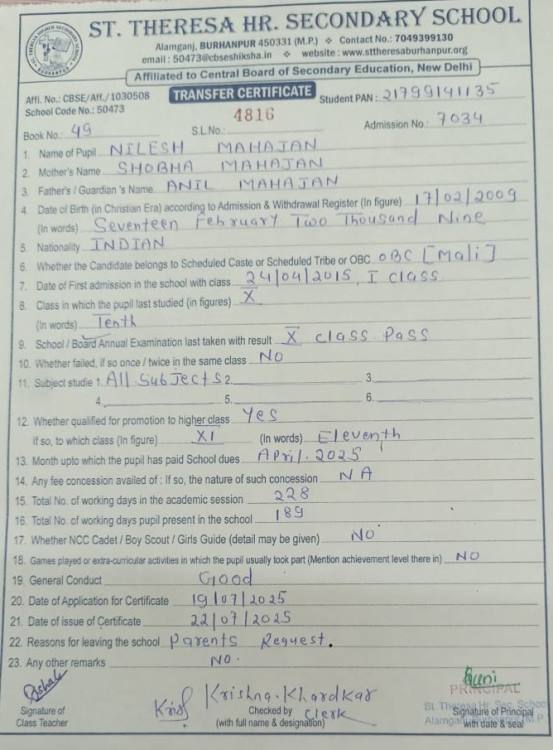 ST. THERESA HR. SECONDARY SCHOOL
Alamganj, BURHANPUR 450331 (M.P.) ✧ Contact No.: 7049399130
email : 50473@cbseshiksha.in ✧ website : www.sttheresaburhanpur.org
Affiliated to Central Board of Secondary Education, New Delhi
Affi. No.: CBSE/Aff./1030508 TRANSFER CERTIFICATE Student PAN : 21799141135
School Code No.: 50473
Book No.: 49 S.L.No.: 4816 Admission No.: 7034
1. Name of Pupil NILESH MAHAJAN
2. Mother's Name SHOBHA MAHAJAN
3. Father's / Guardian 's Name ANIL MAHAJAN
4. Date of Birth (in Christian Era) according to Admission & Withdrawal Register (In figure) 17/02/2009
(In words) Seventeen February Two Thousand Nine
5. Nationality INDIAN
6. Whether the Candidate belongs to Scheduled Caste or Scheduled Tribe or OBC OBC [Mali]
7. Date of First admission in the school with class 24/04/2015, I class
8. Class in which the pupil last studied (in figures) X
(In words) Tenth
9. School / Board Annual Examination last taken with result X class Pass
10. Whether failed, if so once / twice in the same class NO
11. Subject studie 1. All Subjects 2. 3.
4. 5. 6.
12. Whether qualified for promotion to higher class Yes
if so, to which class (In figure) XI (In words) Eleventh
13. Month upto which the pupil has paid School dues April. 2025
14. Any fee concession availed of : If so, the nature of such concession NA
15. Total No. of working days in the academic session 228
16. Total No. of working days pupil present in the school 189
17. Whether NCC Cadet / Boy Scout / Girls Guide (detail may be given) NO
18. Games played or extra-curricular activities in which the pupil usually took part (Mention achievement level there in) NO
19. General Conduct Good
20. Date of Application for Certificate 19/07/2025
21. Date of issue of Certificate 22/07/2025
22. Reasons for leaving the school Parents Request.
23. Any other remarks NO.
Krishna. Khardkar
Clerk
PRINCIPAL
Signature of Class Teacher
Checked by (with full name & designation)
Signature of Principal with date & seal